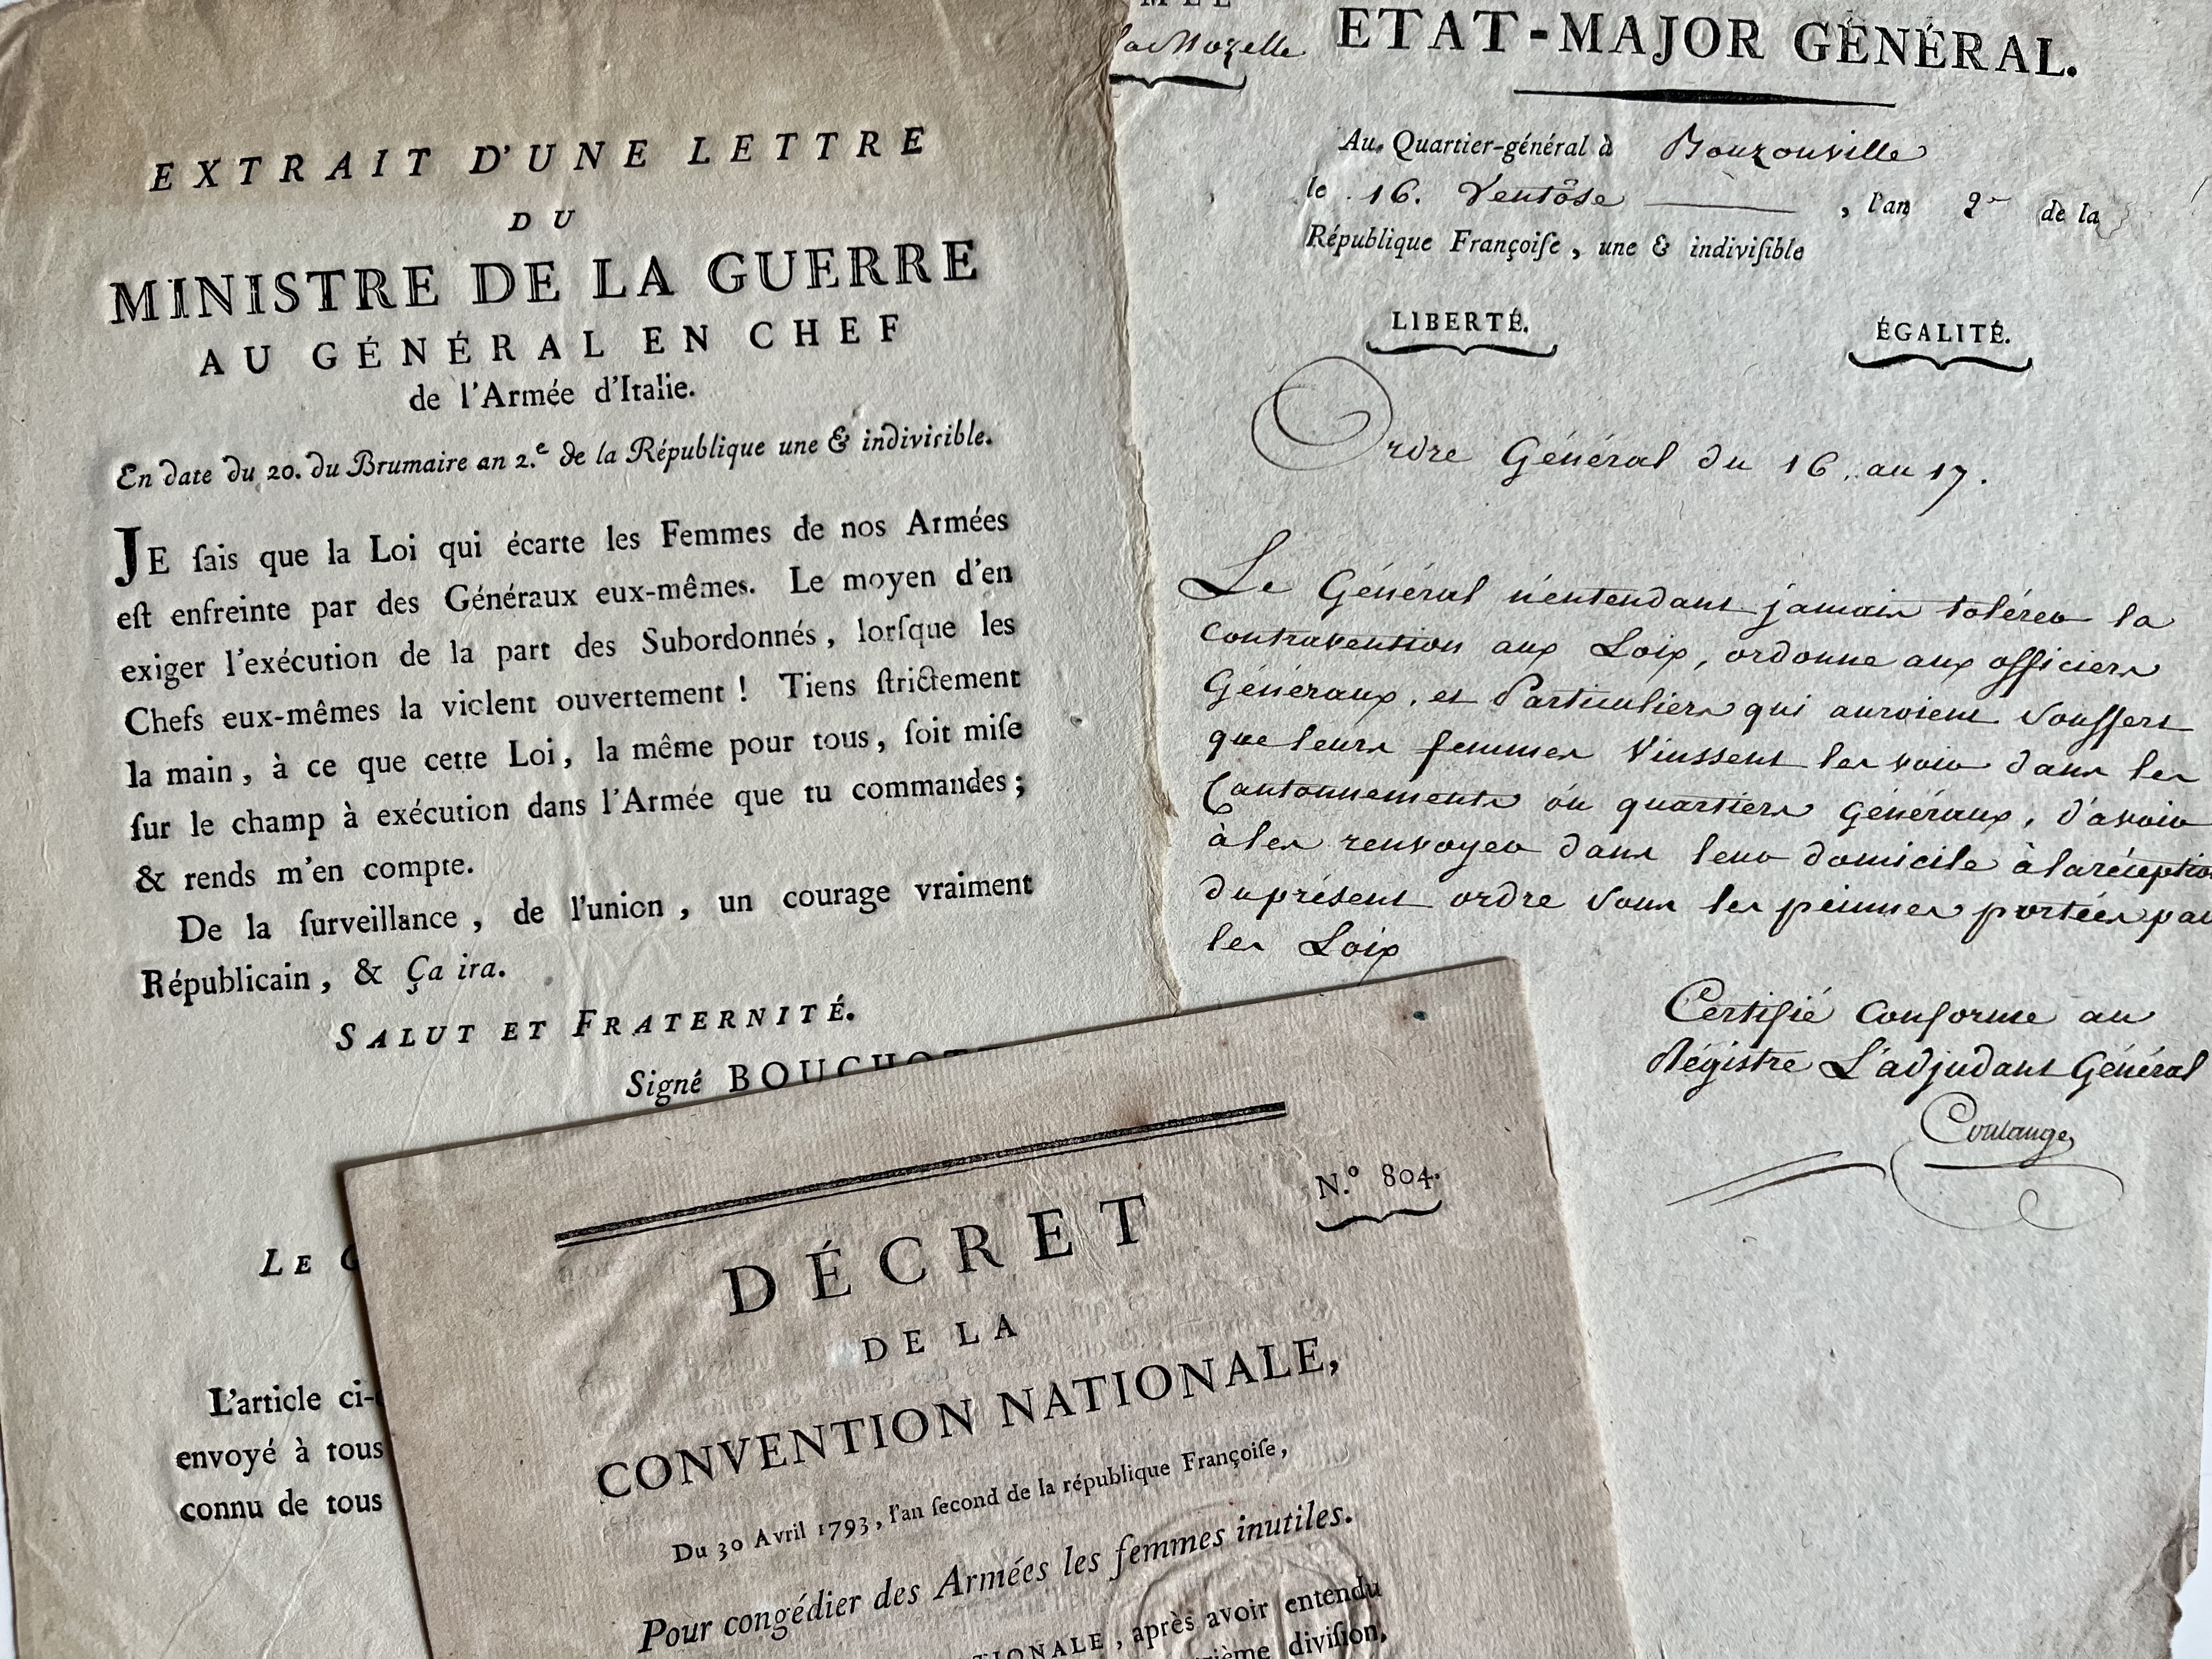 EXTRAIT D'UNE LETTRE
DU
MINISTRE DE LA GUERRE
AU GÉNÉRAL EN CHEF
de l'Armée d'Italie.
En date du 20. du Brumaire an 2.e de la République une & indivisible.
JE ſais que la Loi qui écarte les Femmes de nos Armées
eſt enfreinte par des Généraux eux-mêmes. Le moyen d'en
exiger l'exécution de la part des Subordonnés, lorſque les
Chefs eux-mêmes la violent ouvertement ! Tiens ſtrictement
la main, à ce que cette Loi, la même pour tous, ſoit miſe
ſur le champ à exécution dans l'Armée que tu commandes;
& rends m'en compte.
De la ſurveillance, de l'union, un courage vraiment
Républicain, & Ça ira.
SALUT ET FRATERNITÉ.
Signé BOUCHOT
LE
L'article ci-
envoyé à tous
connu de tous
la Mozelle
ETAT-MAJOR GÉNÉRAL.
Au Quartier-général à Bouzonville
le 16. Ventôse , l'an 2 de la
République Françoiſe, une & indiviſible
LIBERTÉ. ÉGALITÉ.
Ordre Général du 16. au 17.
Le Général n'entendant jamais tolérer la
contravention aux Loix, ordonne aux officiers
Généraux, et Particuliers qui auroient souffert
que leurs femmes vinssent les voir dans les
Cantonnements ou quartiers Généraux, d'avoir
à les renvoyer dans leur domicile à la réception
du présent ordre sous les peinnes portées par
les Loix
Certifié conforme au
Régistre L'adjudant Général
Coulange
N.º 804.
DÉCRET
DE LA
CONVENTION NATIONALE,
Du 30 Avril 1793, l'an ſecond de la république Françoiſe,
Pour congédier des Armées les femmes inutiles.
TIONALE, après avoir entendu
diviſion,